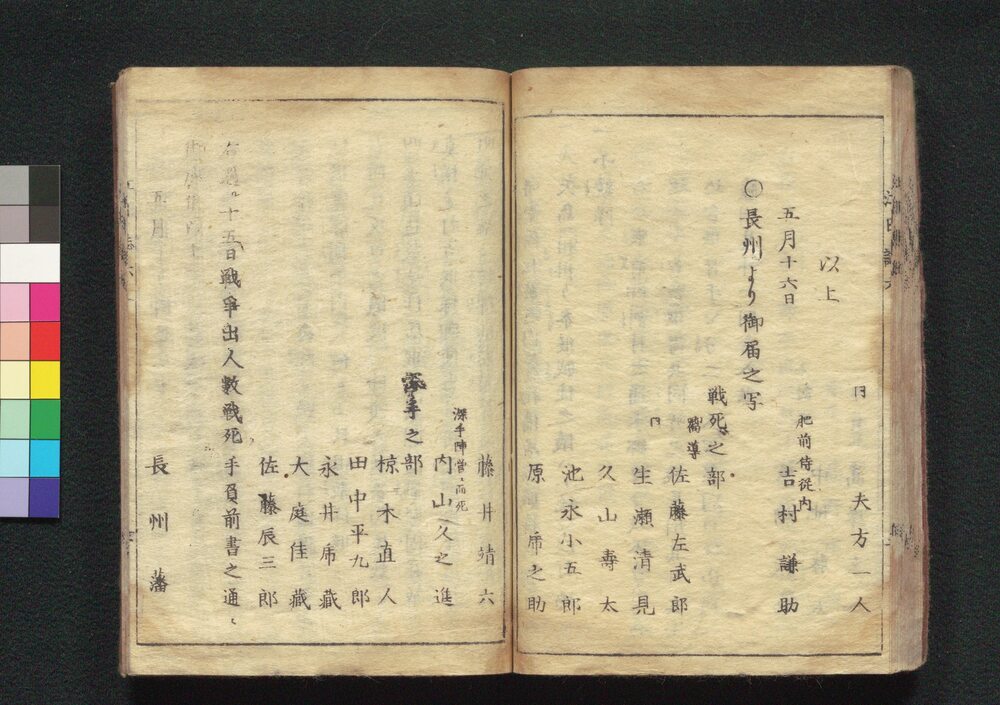 同 夫方一人
以上
五月十六日 肥前侍従内 吉村謙助
○長州より御届之写
戦死之部
嚮導 佐藤左武郎
同 生瀬清見
久山壽太
池永小五郎
原席之助
藤井靖六
深手陣営ニ而死 内山久之進
手之部
椋木直人
田中平九郎
永井席藏
大庭佳藏
佐藤辰三郎
十五日戦争出人数戦死手負前書之通ニ
五月
長州藩